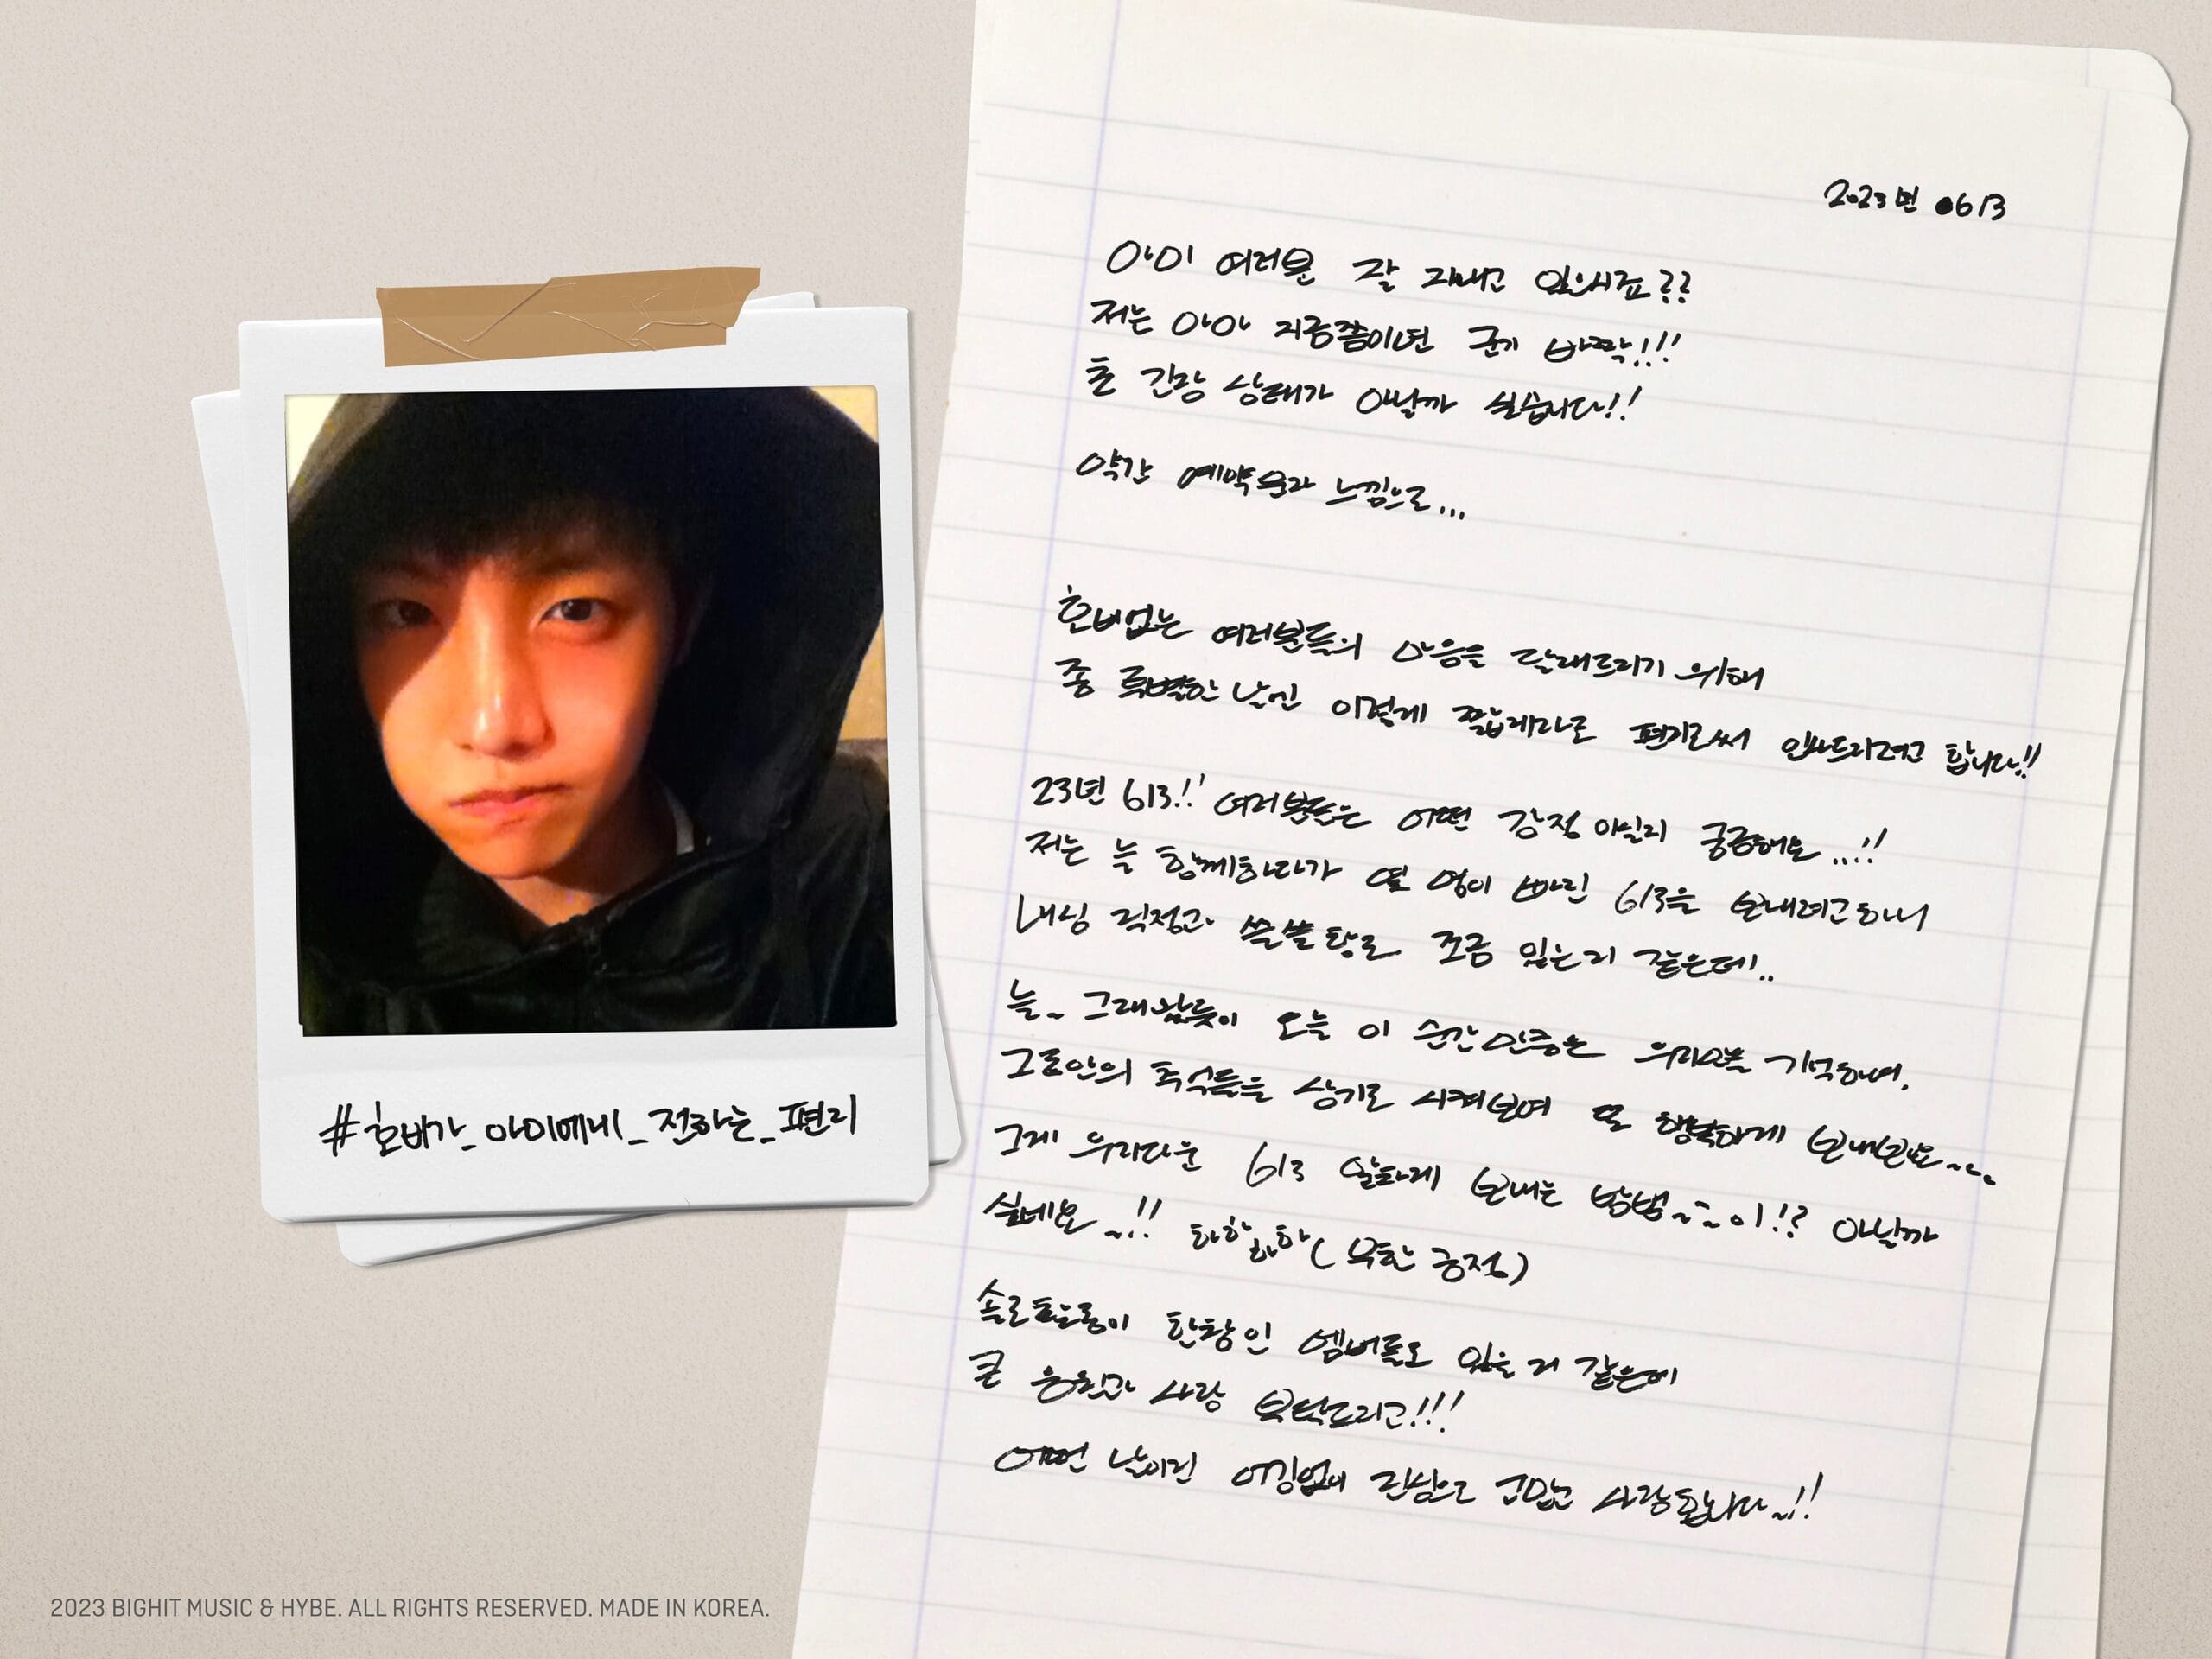 2023년 0613
아미 여러분 잘 지내고 있으시죠??
저는 아마 지금쯤이면 군기 바짝!!!
초 긴장 상태가 아닐까 싶습니다!!
약간 예약문자 느낌으로...
호비없는 여러분들의 마음을 달래드리기 위해
좀 특별한 날인 이렇게 짧게라도 편지로써 인사드리려고 합니다!!
23년 613!! 여러분들은 어떤 감정이실지 궁금해요...!!
저는 늘 함께하다가 몇 명이 빠진 613을 보내려고하니
내심 걱정과 쓸쓸함도 조금 있는거 같은데..
늘~ 그래왔듯이 오늘 이 순간만큼은 우리만을 기억하며,
그동안의 추억들을 상기도 시켜보며 또 행복하게 보내보아요~~
그게 우리다운 613 알차게 보내는 방법~~이!? 아닐까
싶네요..!! 하핳하하 (무한 긍정)
솔로활동이 한창인 멤버들도 있을 거 같은데
큰 응원과 사랑 부탁드리고!!!
어떤 날이던 어김없이 진심으로 고맙고 사랑합니다..!!
#호비가_아미에게_전하는_편지
2023 BIGHIT MUSIC & HYBE. ALL RIGHTS RESERVED. MADE IN KOREA.